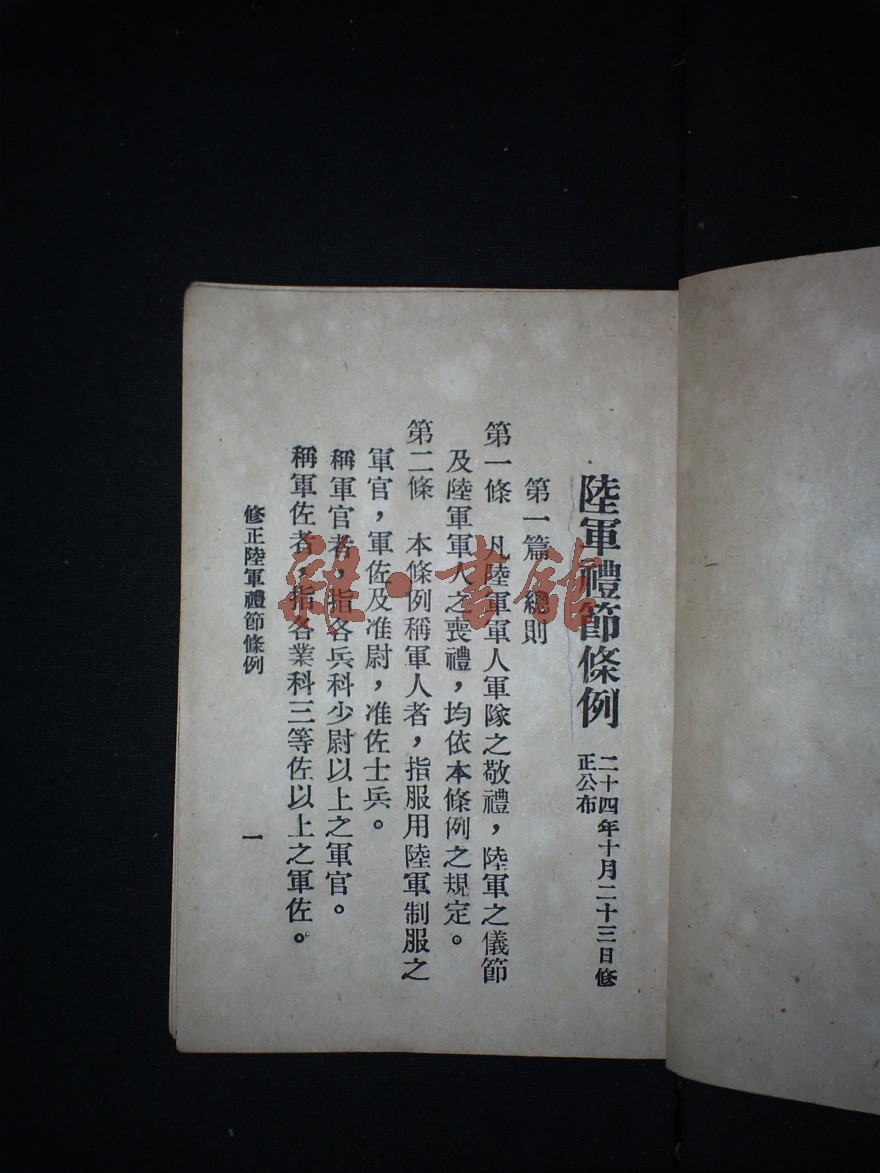 陸軍禮節條例
二十四年十月二十三日修
正公布
第一篇 總則
第一條 凡陸軍軍人軍隊之敬禮,陸軍之儀節
及陸軍軍人之喪禮,均依本條例之規定。
第二條 本條例稱軍人者,指服用陸軍制服之
軍官,軍佐及准尉,准佐士兵。
稱軍官者,指各兵科少尉以上之軍官。
稱軍佐者,指各業科三等佐以上之軍佐。
修正陸軍禮節條例
一
雜·書館